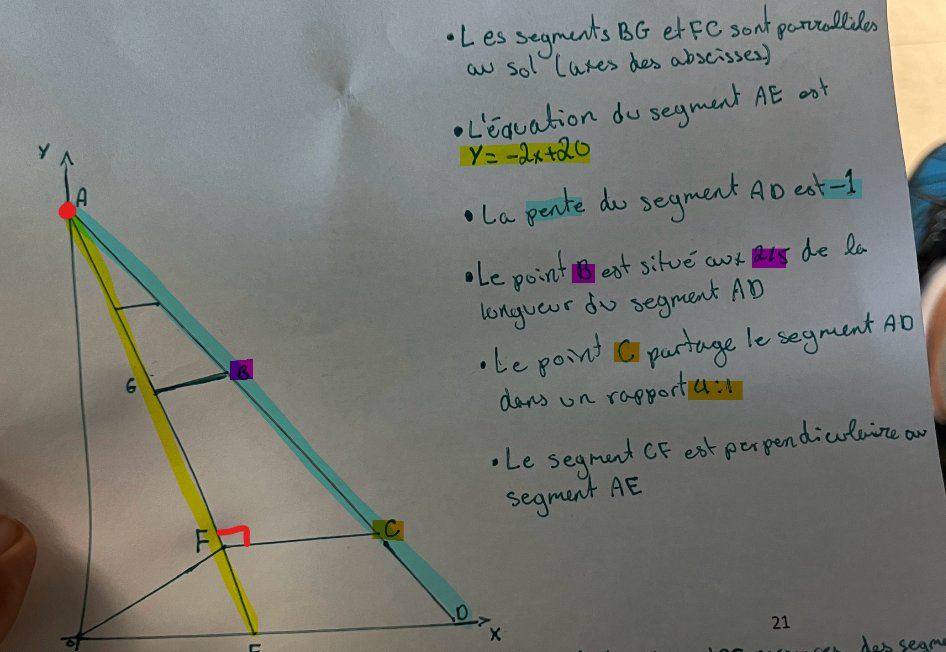 • Les segments BG et FC sont parralléles
au sol (axes des abscisses)
• L'équation du segment AE est
Y = -2x+20
• La pente du segment AD est -1
• Le point B est situé aux 2/5 de la
longueur du segment AD
• Le point C partage le segment AD
dans un rapport 4:1
• Le segment CF est perpendiculaire au
segment AE
Y
A
G
B
F
C
D
X
E
21
des segm